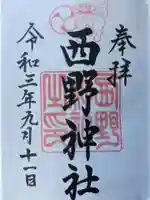 奉拝
西野神社
令和三年九月十一日